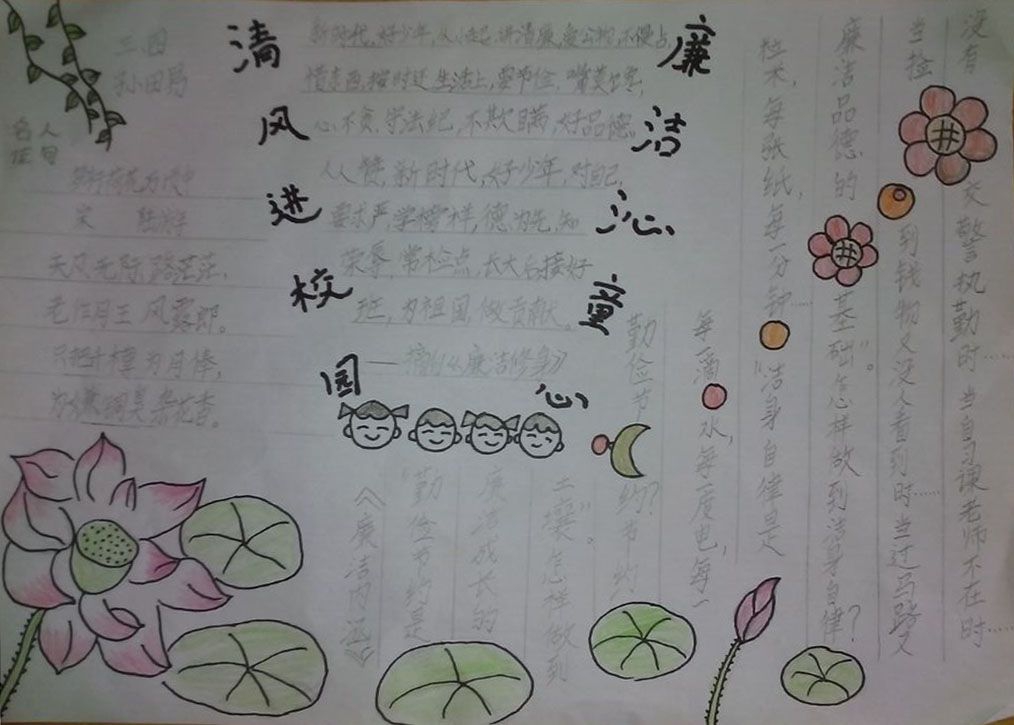 清风进校园
廉洁沁童心
名人佳句
梦行荷花万顷中
宋 陆游
天风无际路茫茫，
老作月王风露郎。
只把千樽为月俸，
为嫌铜臭杂花香。
新时代,好少年,从小起,讲清廉,爱公物,不侵占,
借东西,按时还 生活上,要节俭,嘴莫馋,
心不贪,学法纪,不欺瞒,好品德,
人人赞,新时代,好少年,对自己,
要求严,学榜样,德为先,知
荣辱,常检点,长大后接好
班,为祖国做贡献。
——摘自《廉洁修身》
《廉洁内涵》
“勤俭节约是
廉洁成长的
土壤”。怎样做到
勤俭节约？节约
每一滴水,每度电,每一
粒米,每张纸,每一分钟……“洁身自律是
廉洁品德的基础”。怎样做到洁身自律？
当捡到钱物又没人看到时……当过马路又
没有交警执勤时……当自习课老师不在时……